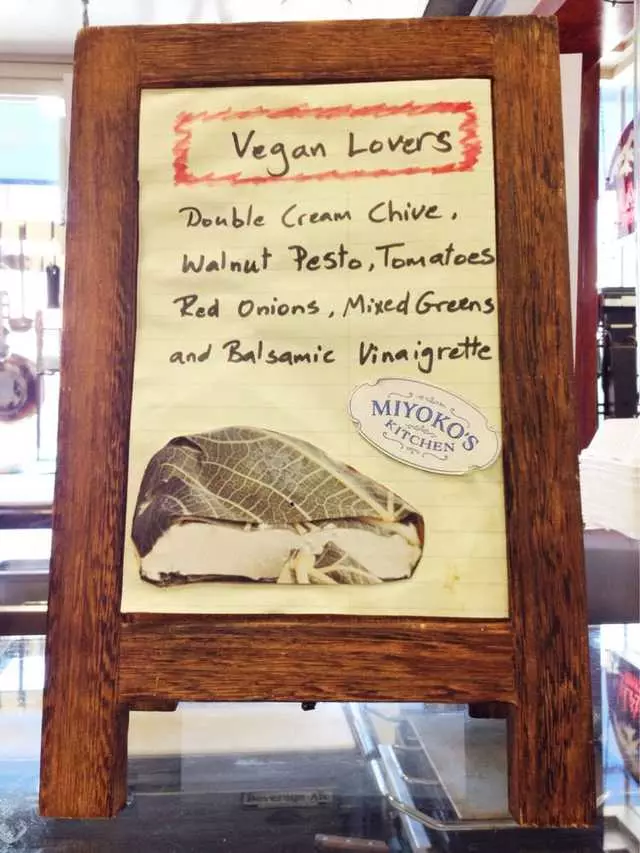 Vegan Lovers
Double Cream Chive,
Walnut Pesto, Tomatoes
Red Onions, Mixed Greens
and Balsamic Vinaigrette
MIYOKO'S
KITCHEN